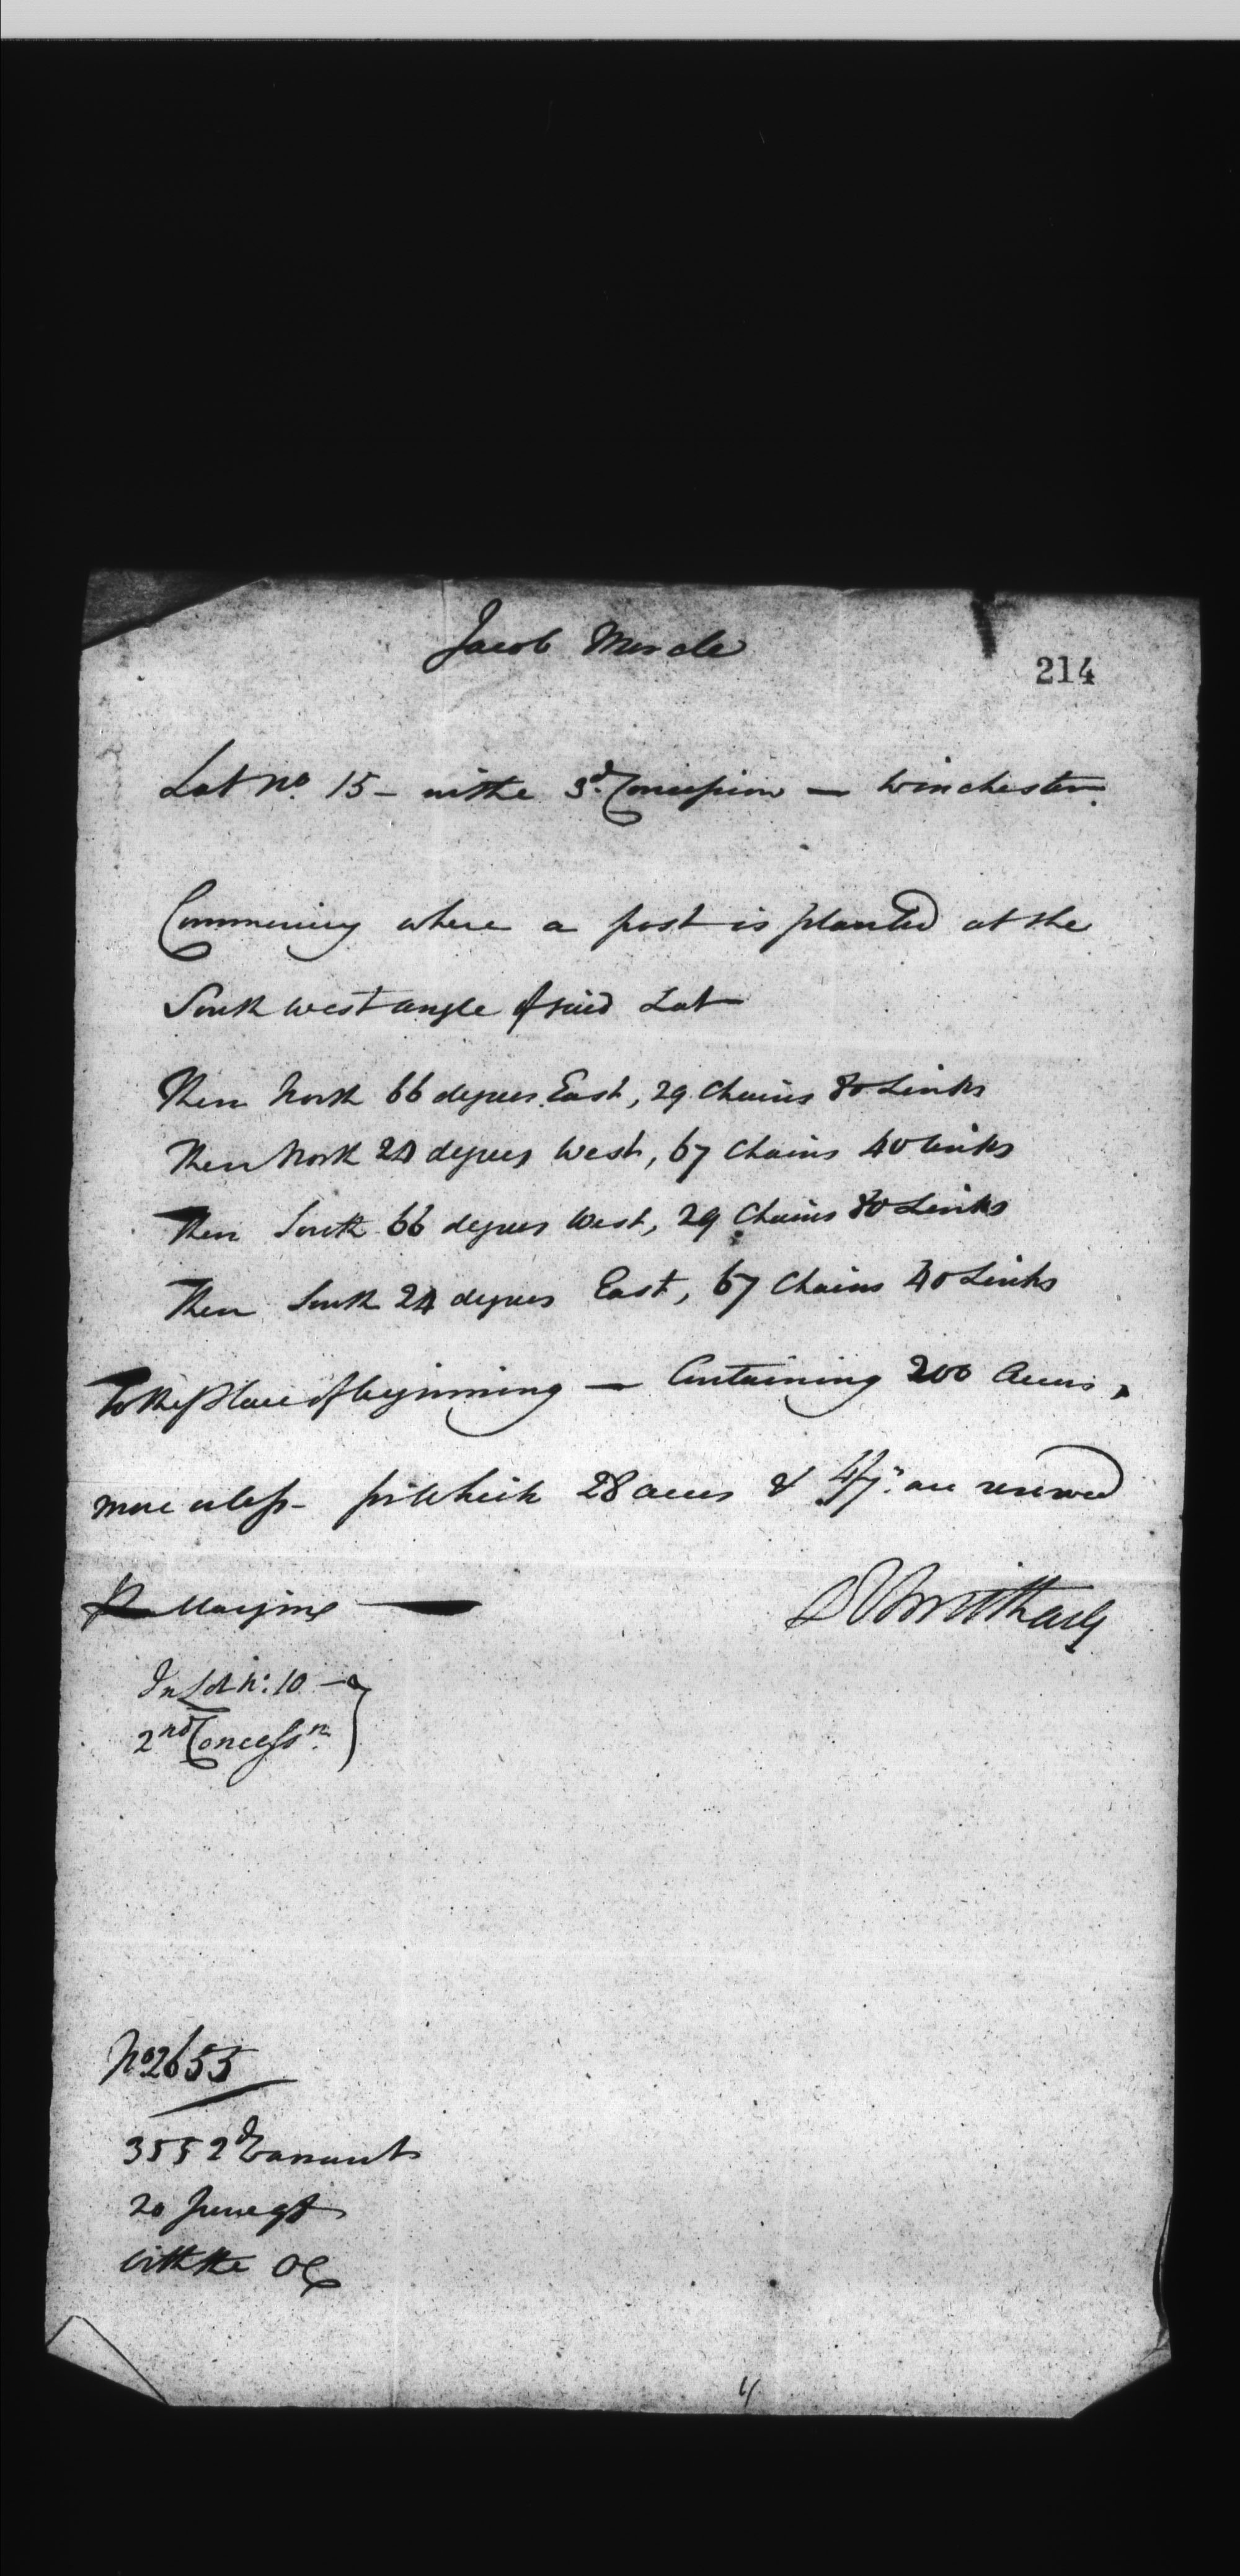 Jacob Mercle
214
Lot No. 15 - in the 3d. Concession — Winchester.
Commencing where a post is planted at the
South west angle of said Lot
Then North 66 degrees East, 29 Chains 80 Links
Then North 24 degrees West, 67 Chains 40 links
Then South 66 degrees West, 29 Chains 80 Links
Then South 24 degrees East, 67 Chains 40 Links
To the place of beginning — Containing 200 Acres,
more or less - for which 28 acres & 4/7: are reserved
Pr Margine —
DWSmith ASG
In Lot No: 10 —
2nd Concessn.
No 2655
3552d Warrant
20 June 98
With the OC
4